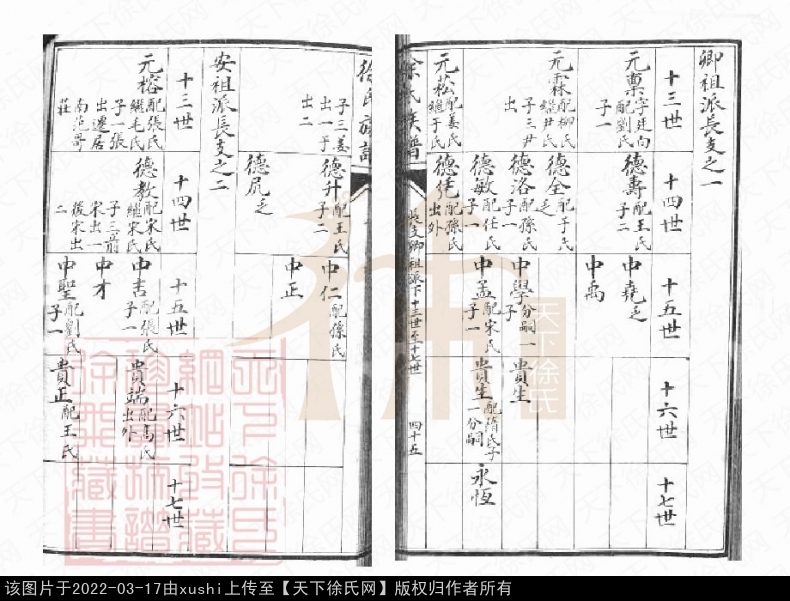 卿祖派長支之一
十三世
十四世
十五世
十六世
十七世
元稟字廷向
配劉氏
子一
德壽配王氏
子二
中堯乏
中禹
元霖配柳氏
繼尹氏
子三尹
出
德全配于氏
乏
德洛配孫氏
子一
中學分嗣一
子
貴生
德敏配任氏
子一
中孟配宋氏
子一
貴生配隋氏子
一分嗣
永恆
元菘配姜氏
繼于氏
配孫氏
出外
徐氏族譜
長支卿祖派下十三世至十七世
四十五
徐氏族譜
子三姜
出一于
出二
德升配王氏
子二
中仁配孫氏
中正
德凡乏
安祖派長支之二
十三世
十四世
十五世
十六世
十七世
元榕配張氏
繼毛氏
子一張
出遷居
南范哥
莊
德教配宋氏
繼宋氏
子三前
宋出一
後宋出
二
中吉配張氏
子一
貴端配高氏
出外
中才
中聖配劉氏
子一
貴正配王氏
天下徐氏
该图片于2022-03-17由xushi上传至【天下徐氏网】版权归作者所有